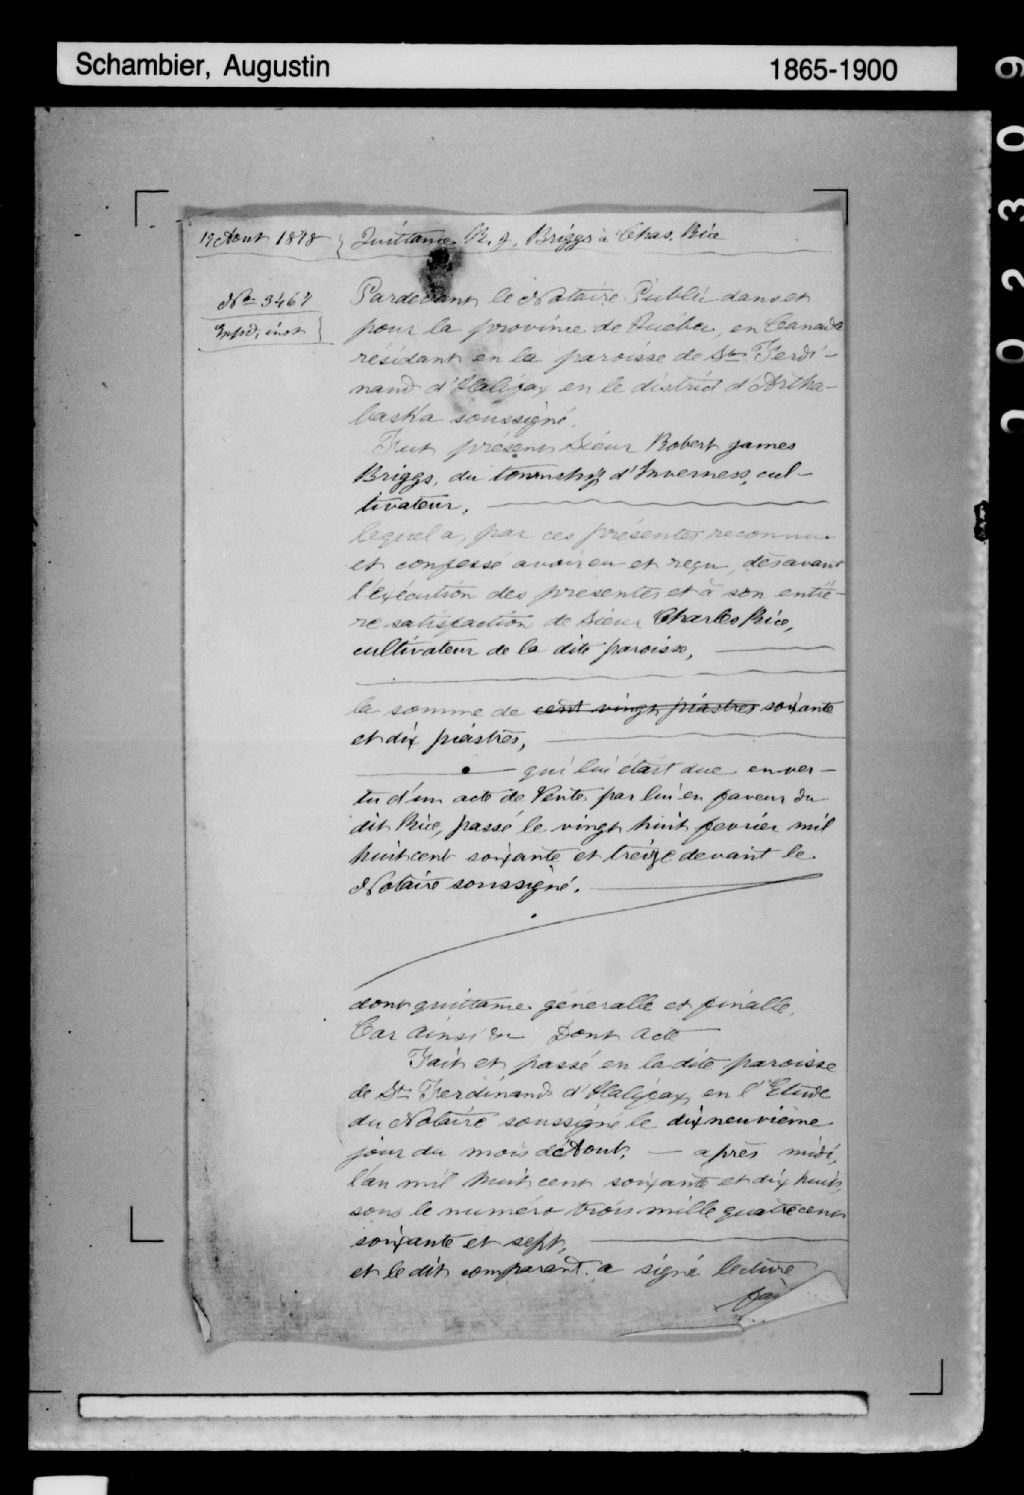 Schambier, Augustin 1865-1900
02309
19 Aout 1878 } Quittance R. J. Briggs à Chas. Rice
No 3467
Expd, inst }
Pardevant le Notaire Public dans et
pour la province de Québec, en Canada
résidant en la paroisse de St Ferdi-
nand d'Halifax en le district d'Artha-
baska soussigné.
Fut présent Sieur Robert James
Briggs, du township d'Inverness, cul-
tivateur,
lequel a, par ces présentes reconnu
et confessé avoir eu et reçu, dès avant
l'exécution des présentes et à son entiè-
re satisfaction de Sieur Charles Rice,
cultivateur de la dite paroisse,
la somme de cent vingt piastres soixante
et dix piastres,
qui lui était due en ver-
tu d'un acte de Vente par lui en faveur du
dit Rice, passé le vingt huit fevrier mil
huit cent soixante et treize devant le
Notaire soussigné.
dont quittance généralle et finalle,
Car ainsi &c Dont acte
Fait et passé en la dite paroisse
de St Ferdinand d'Halifax, en l'Etude
du Notaire soussigné le dixneuvième
jour du mois d'Aout, — après midi,
l'an mil huit cent soixante et dix huit,
sous le numéro trois mille quatre cent
soixante et sept,
et le dit comparant a signé lecture